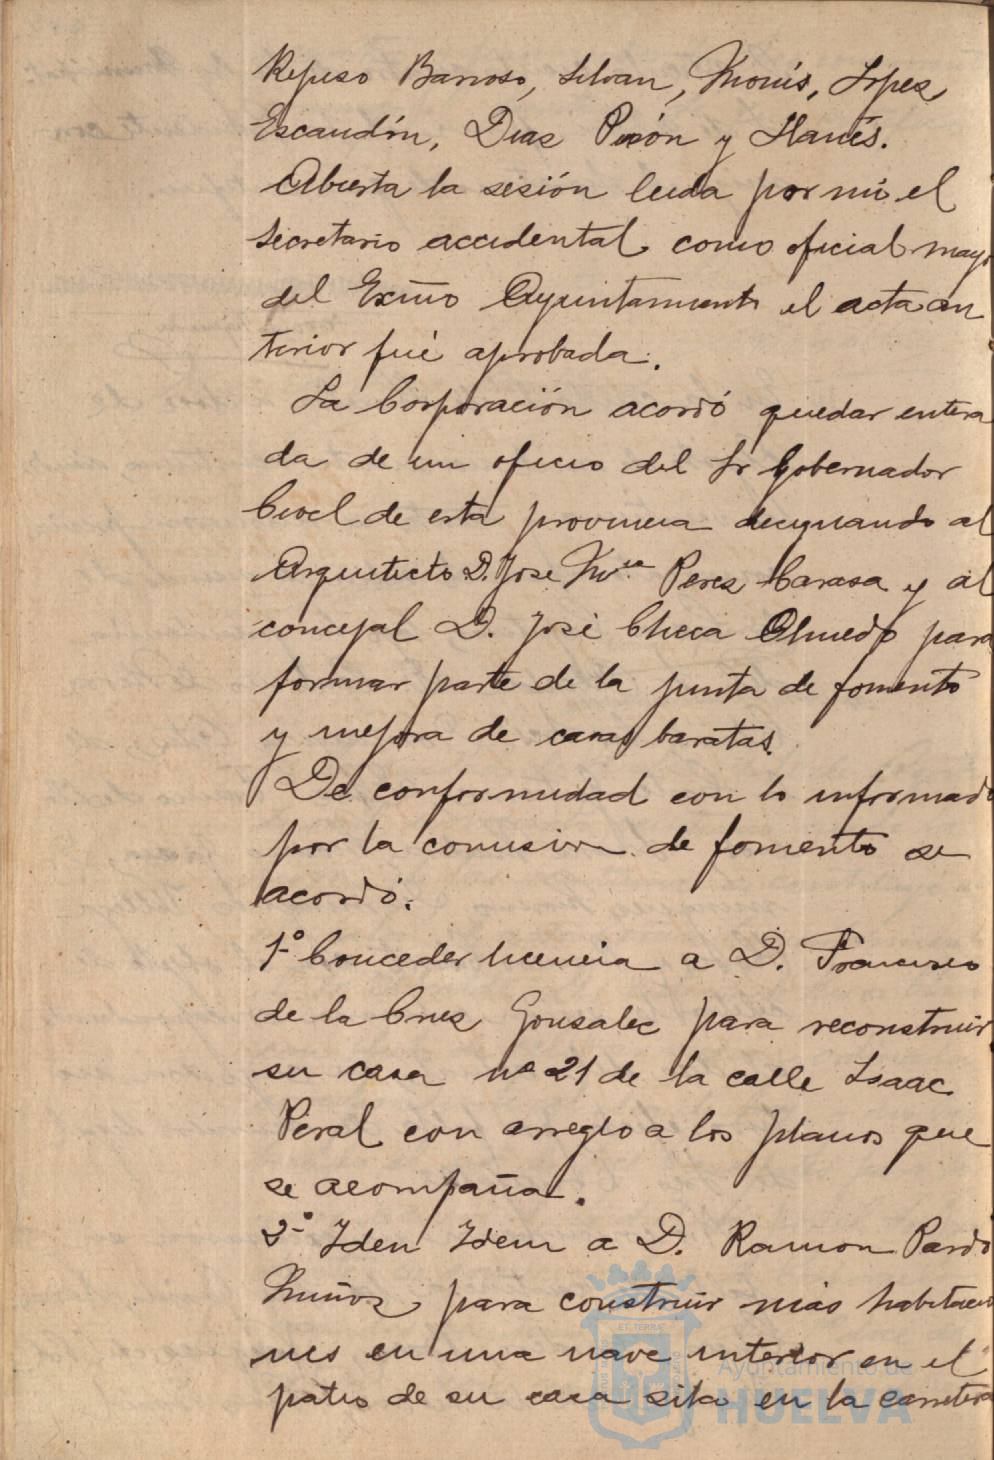 Repuso Barroso, Silvan, Monís, López
Escandón, Diaz Pizón y Llanés.
Abierta la sesión leida por mi el
secretario accidental como oficial mayo
del Excmo Ayuntamiento el acta an
terior fué aprobada.
La Corporación acordó quedar entera
da de un oficio del Sr Gobernador
Civil de esta provincia designando al
Arquitecto D. Jose Mª Perez Carasa y al
concejal D. José Checa Olmedo para
formar parte de la junta de fomento
y mejora de casas baratas.
De conformidad con lo informado
por la comision de fomento se
acordó.
1º Conceder licencia a D. Francisco
de la Cruz Gonzalez para reconstruir
su casa nº 21 de la calle Isaac
Peral con arreglo a los planos que
se acompaña.
2º Iden Idem a D. Ramon Pardo
Muñoz para construir más habitacio
nes en una nave interior en el
patio de su casa sita en la carretera
Ayuntamiento de
HUELVA